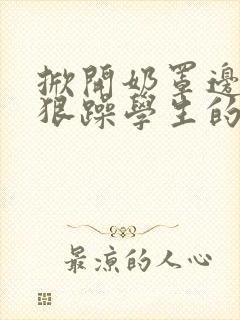 掀開奶罩邊
狠躁學生的
最涼的人心